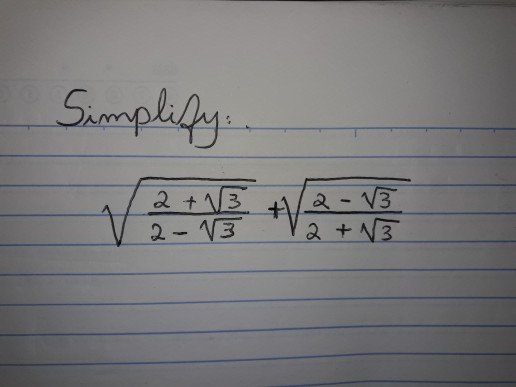 Simplify:
√((2 + √3)/(2 - √3)) + √((2 - √3)/(2 + √3))